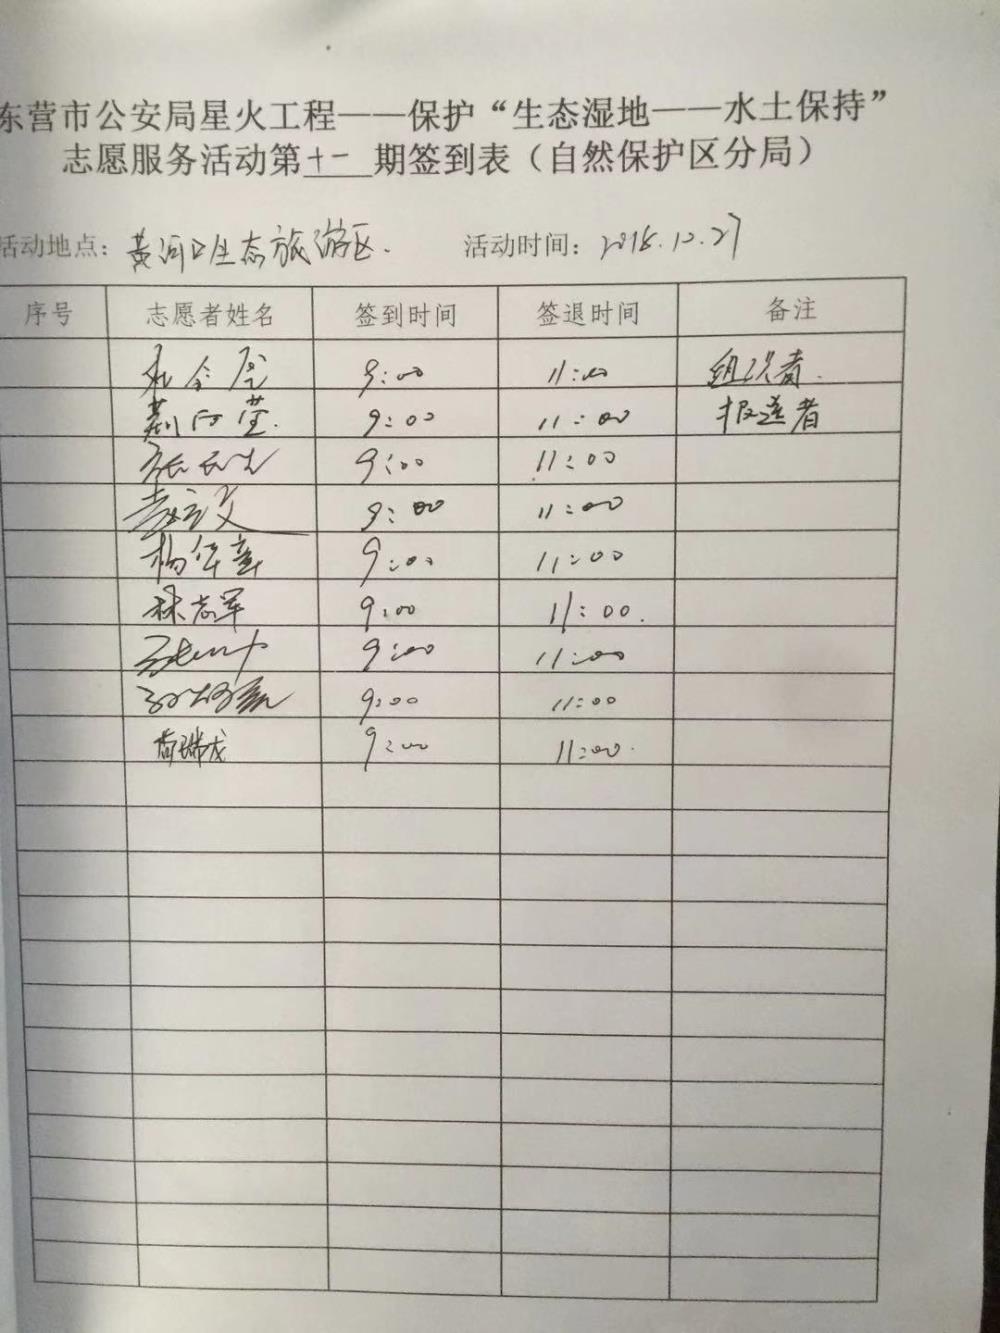 东营市公安局星火工程——保护“生态湿地——水土保持”
志愿服务活动第十一期签到表（自然保护区分局）
活动地点：黄河口生态旅游区. 活动时间：2018.10.27
序号 志愿者姓名 签到时间 签退时间 备注
9:00 11:00 组织者.
9:00 11:00 报送者
9:00 11:00
9:00 11:00
9:00 11:00
林志军 9:00 11:00.
9:00 11:00
9:00 11:00
9:00 11:00.